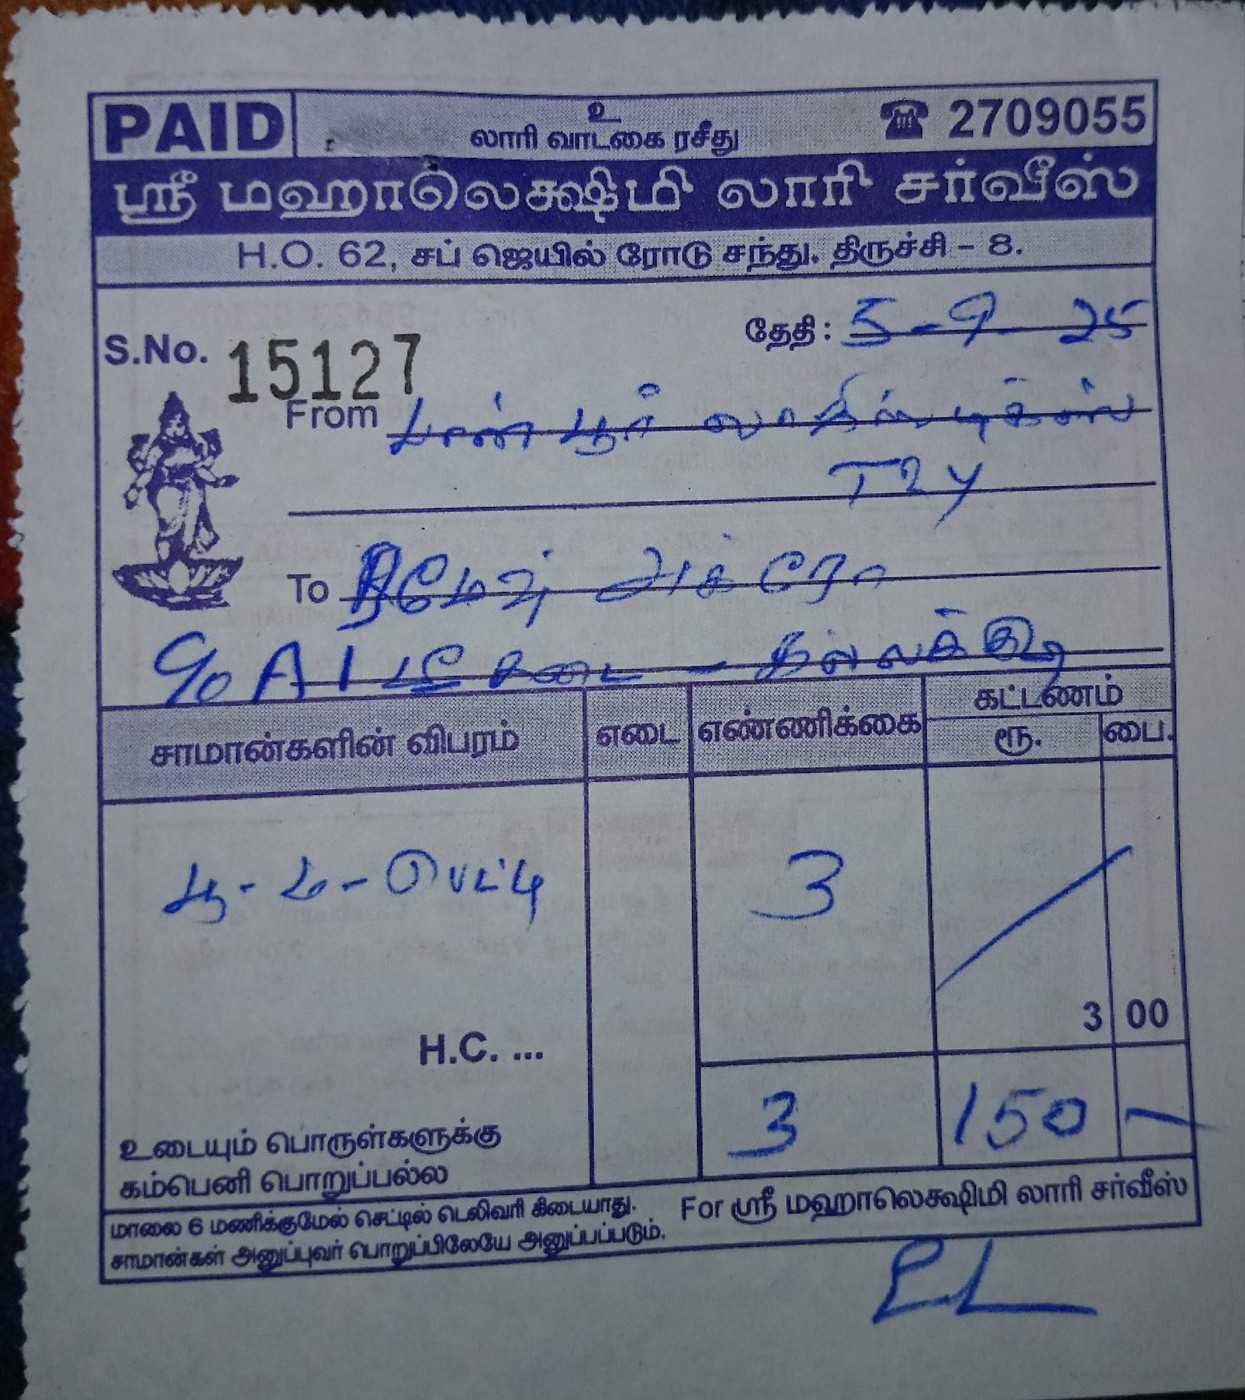 PAID
உ
லாரி வாடகை ரசீது
☎ 2709055
ஸ்ரீ மஹாலெக்ஷிமி லாரி சர்வீஸ்
H.O. 62, சப் ஜெயில் ரோடு சந்து, திருச்சி - 8.
S.No. 15127
தேதி: 5-9-25
From லாஜிஸ்டிக்ஸ்
TRY
To ரமேஷ் அக்ரோ
C/o A1 டீ கடை - கல்லக்குடி
சாமான்களின் விபரம் எடை எண்ணிக்கை கட்டணம்
ரூ. பை.
பூ-ம-பெட்டி 3
3 00
H.C. ...
3 150 —
உடையும் பொருள்களுக்கு
கம்பெனி பொறுப்பல்ல
மாலை 6 மணிக்குமேல் செட்டில் டெலிவரி கிடையாது.
சாமான்கள் அனுப்புவர் பொறுப்பிலேயே அனுப்பப்படும்.
For ஸ்ரீ மஹாலெக்ஷிமி லாரி சர்வீஸ்